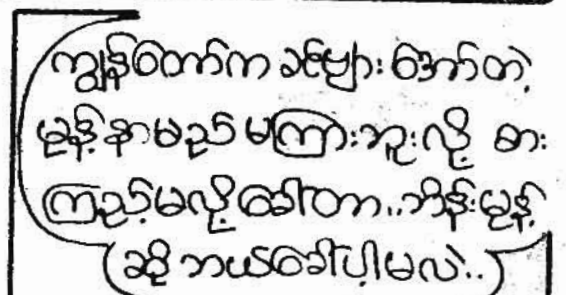 ကျွန်တော်က ခင်ဗျား အော်တဲ့
မုန့်နာမည် မကြားဘူးလို့ စား
ကြည့်မလို့ခေါ်တာ..ဘိန်းမုန့်
ဆို ဘယ်ခေါ်ပါ့မလဲ..